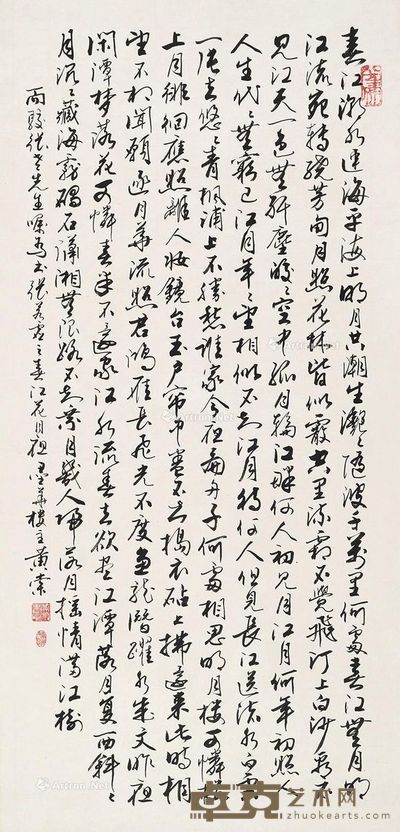 春江潮水連海平海上明月共潮生灩々隨波千萬里何處春江無月明
江流宛轉繞芳甸月照花林皆似霰空里流霜不覺飛汀上白沙看不
見江天一色無纤塵皎々空中孤月輪江畔何人初見月江月何年初照人
人生代々無窮已江月年々望相似不知江月待何人但見長江送流水白雲
一片去悠々青楓浦上不勝愁誰家今夜扁舟子何處相思明月樓可憐樓
上月徘徊應照離人妝鏡台玉戶帘中卷不去搗衣砧上拂還來此時相
望不相聞願逐月華流照君鴻雁長飛光不度魚龍潛躍水成文昨夜
閑潭夢落花可憐春半不還家江水流春去欲盡江潭落月夏西斜々
月沉々藏海霧碣石瀟湘無限路不知乘月幾人歸落月搖情滿江樹
張老先生囑為書張若虛之春江花月夜 墨華樓主黃
Artron.Net
卓克艺术网
zhuokearts.com